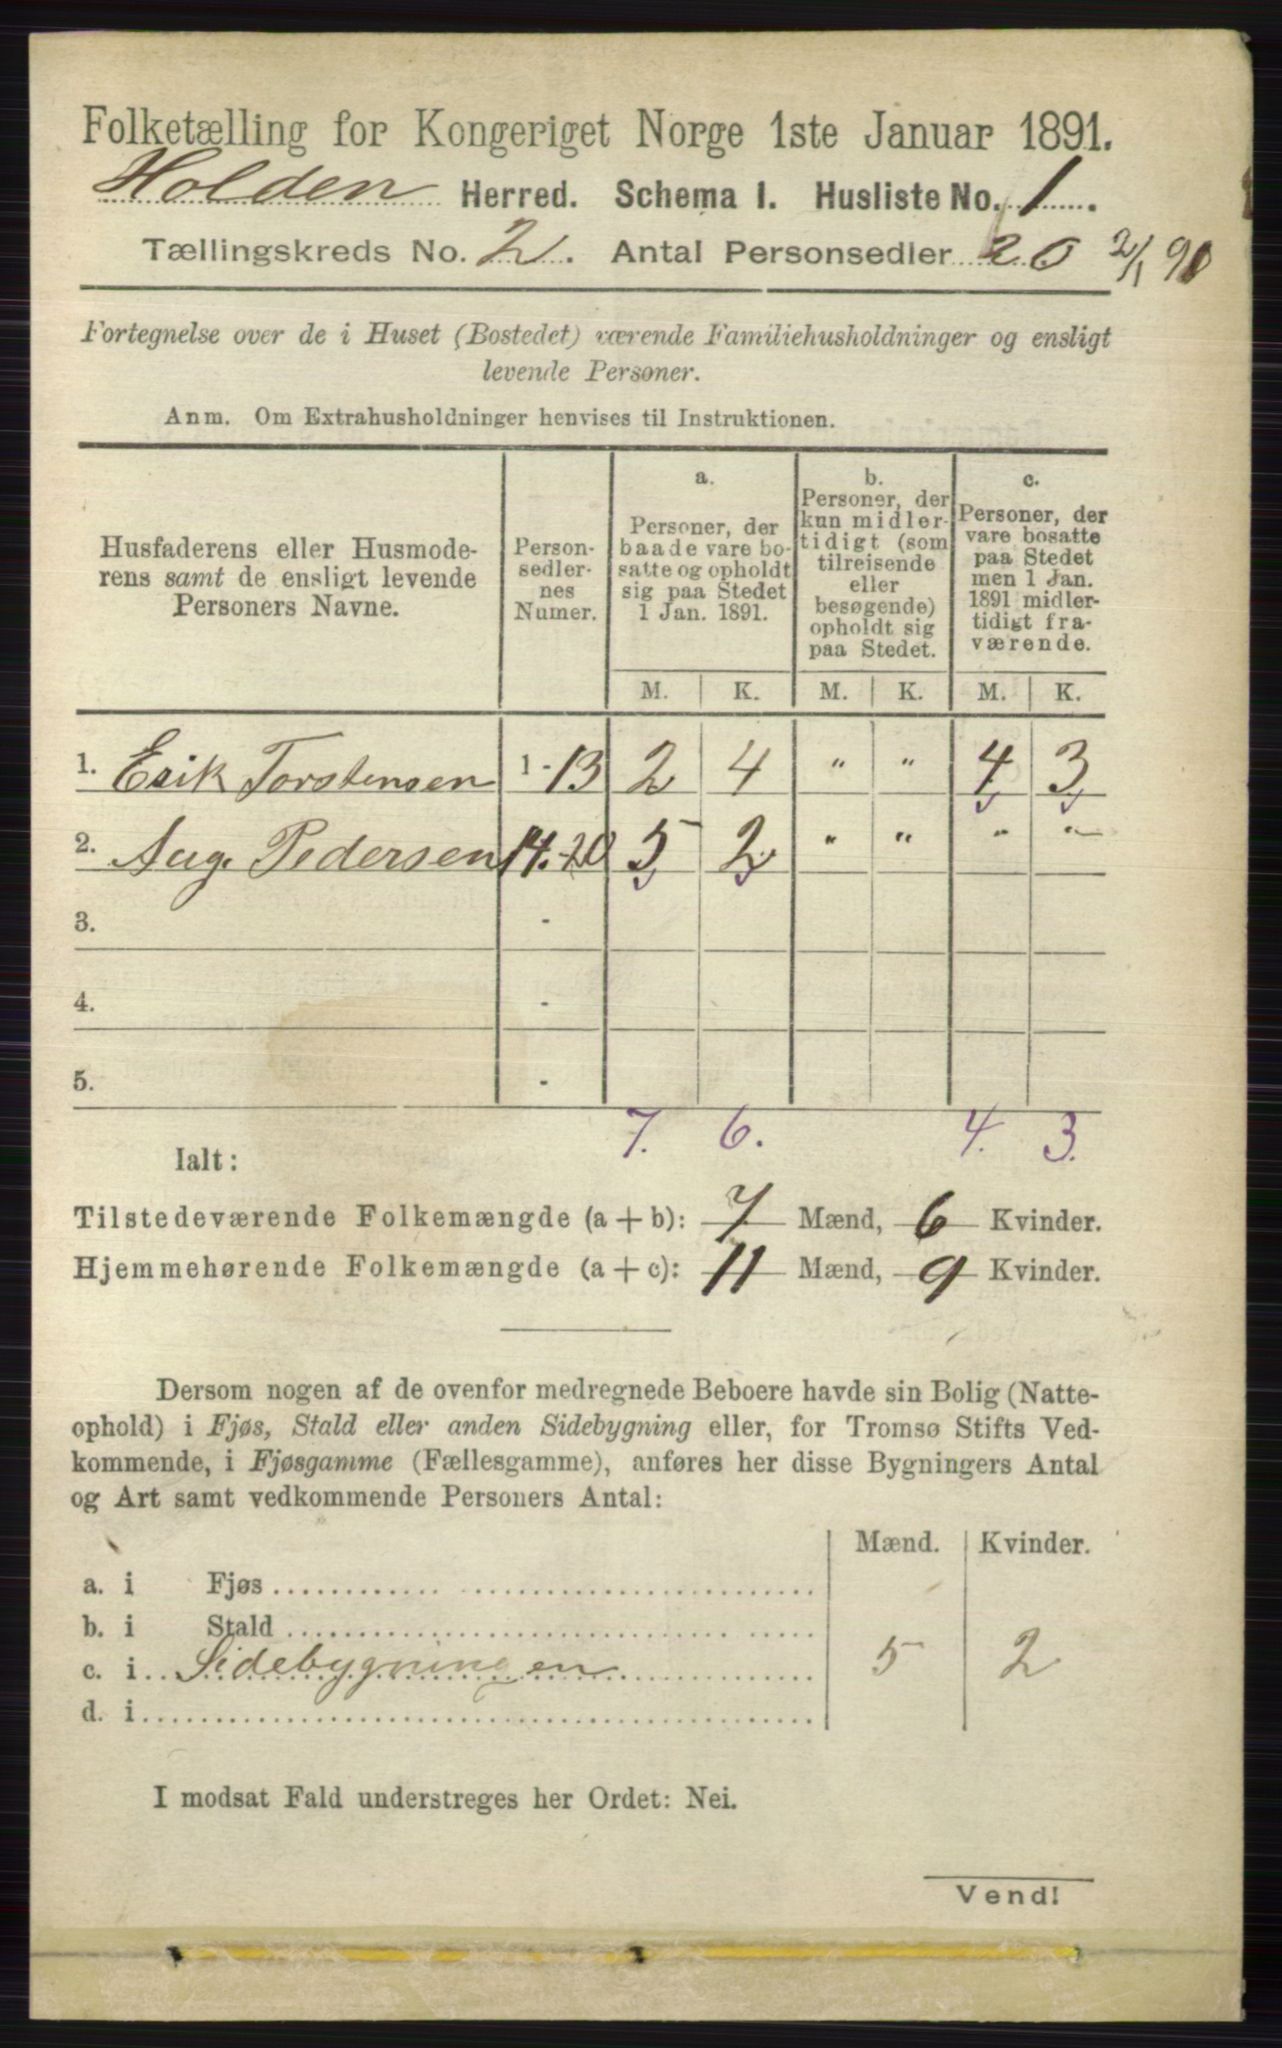 Folketælling for Kongeriget Norge 1ste Januar 1891.
Holden Herred. Schema I. Husliste No. 1.
Tællingskreds No. 2. Antal Personsedler 20 2/1 91
Fortegnelse over de i Huset (Bostedet) værende Familiehusholdninger og ensligt
levende Personer.
Anm. Om Extrahusholdninger henvises til Instruktionen.
Husfaderens eller Husmode-
rens samt de ensligt levende
Personers Navne.
Person-
sedler-
nes
Numer.
a.
Personer, der
baade vare bo-
satte og opholdt
sig paa Stedet
1 Jan. 1891.
b.
Personer, der
kun midler-
tidigt (som
tilreisende
eller
besøgende)
opholdt sig
paa Stedet.
c.
Personer, der
vare bosatte
paa Stedet
men 1 Jan.
1891 midler-
tidigt fra-
værende.
M. K. M. K. M. K.
1. Erik Torstensen 1-13 2 4 " " 4 3
2. Aug. Pedersen 14.-20 5 2 " " " "
3. -
4. -
5. -
7. 6. 4. 3.
Ialt:
Tilstedeværende Folkemængde (a + b): 7 Mænd, 6 Kvinder.
Hjemmehørende Folkemængde (a + c): 11 Mænd, 9 Kvinder.
Dersom nogen af de ovenfor medregnede Beboere havde sin Bolig (Natte-
ophold) i Fjøs, Stald eller anden Sidebygning eller, for Tromsø Stifts Ved-
kommende, i Fjøsgamme (Fællesgamme), anføres her disse Bygningers Antal
og Art samt vedkommende Personers Antal:
Mænd. Kvinder.
a. i Fjøs
b. i Stald
c. i Sidebygningen 5 2
d. i
I modsat Fald understreges her Ordet: Nei.
Vend!